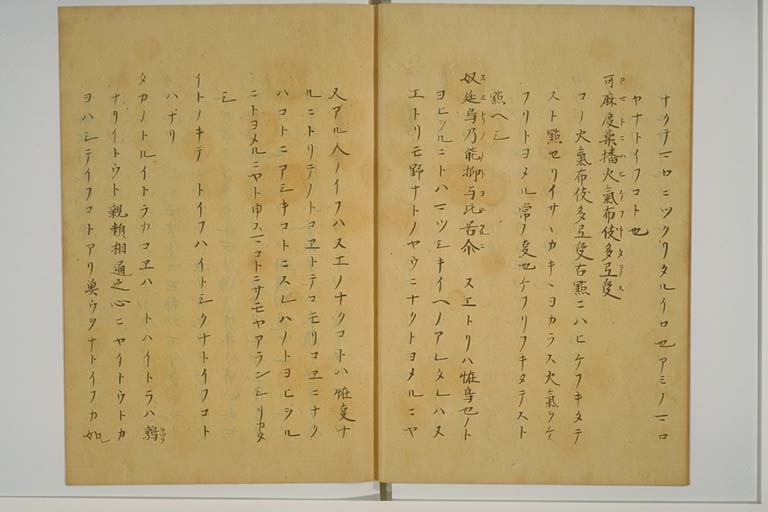 ナクテマロニツクリタルイロ也アミノマロ
ヤナトイフコト也
可麻度柒播火氣布伎多弖受
コノ火氣布伎多弖受古點ニハヒケフキタテ
スト點セリイサヽカキヽヨカラス火氣ヲケ
フリトヨメル常ノ夏也ケフリフキタテスト
點ヘシ
奴延鳥乃能抑与比居尒 スエトリハ恠鳥也ノト
ヨヒシルニトハマツシキイヘノアレタレハヌ
エトリモ野ナトノヤウニナクトヨメルニヤ
又アル人ノイフハヌエノナクコトハ恠夏ナ
ルニトリテノトコヱトテコモリコヱニナク
ハコトニアシキコトニスレハノトヨヒシル
ニトヨメルニヤト申スマコトニサモヤアランシリカタ
シ
イトノキテ トイフハイトシクナトイフコト
ハナリ
タカノトルイトラカコヱハ トハイトラハ鶉
ナリイトウト親頬相通之心ニヤイトウトカ
ヨハシテイフコトアリ奥ウヲナトイフカ如シ